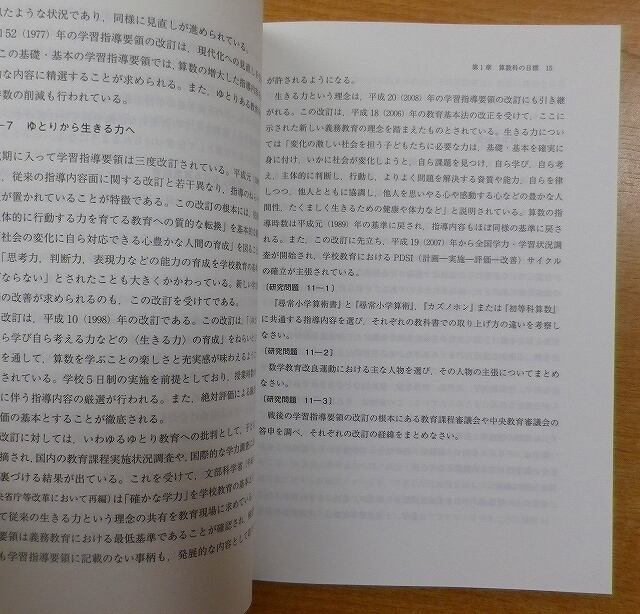 たような状況であり，同様に見直しが進められている。
52（1977）年の学習指導要領の改訂は，現代化への見直し
この基礎・基本の学習指導要領では，算数の増大した指導
的な内容に精選することが求められる。また，ゆとりある
時数の削減も行われている。
－7　ゆとりから生きる力へ
期に入って学習指導要領は三度改訂されている。平成元
，従来の指導内容面に関する改訂と若干異なり，指導の
が置かれていることが特徴である。この改訂の根本には，
体的に行動する力を育てる教育への質的な転換」を基本
「社会の変化に自ら対応できる心豊かな人間の育成」を図る
「思考力，判断力，表現力などの能力の育成を学校教育の
ならない」とされたことも大きくかかわっている。新しい学
の改善が求められるのも，この改訂を受けてである。
改訂は，平成10（1998）年の改訂である。この改訂は，「
ら学び自ら考える力などの〈生きる力〉の育成」をねらい
を通して，算数を学ぶことの楽しさと充実感が味わえるよう
されている。学校5日制の実施を前提としており，授業時
に伴う指導内容の厳選が行われる。また，絶対評価による
価の基本とすることが徹底される。
改訂に対しては，いわゆるゆとり教育への批判として，
摘され，国内の教育課程実施状況調査や，国際的な学力調査
裏づける結果が出ている。これを受けて，文部科学省（
央省庁等改革において再編）は「確かな学力」を学校教育の基本
て従来の生きる力という理念の共有を教育現場に求めている
要領は義務教育における最低基準であることが確認され，
も学習指導要領に記載のない事柄も，発展的な内容として
第1章　算数科の目標　15
が許されるようになる。
生きる力という理念は，平成20（2008）年の学習指導要領の改訂にも引き継
がれる。この改訂は，平成18（2006）年の教育基本法の改正を受けて，ここに
示された新しい義務教育の理念を踏まえたものとされている。生きる力につい
ては「変化の激しい社会を担う子どもたちに必要な力は，基礎・基本を確実に
身に付け，いかに社会が変化しようと，自ら課題を見つけ，自ら学び，自ら考
え，主体的に判断し，行動し，よりよく問題を解決する資質や能力，自らを律
しつつ，他人とともに協調し，他人を思いやる心や感動する心などの豊かな人
間性，たくましく生きるための健康や体力など」と説明されている。算数の指
導時数は平成元（1989）年の基準に戻され，指導内容もほぼ同様の基準に戻さ
れる。また，この改訂に先立ち，平成19（2007）年から全国学力・学習状況調
査が開始され，学校教育における PDSI（計画―実施―評価―改善）サイクル
の確立が主張されている。
［研究問題　11－1］
『尋常小学算術書』と『尋常小学算術』，『カズノホン』または『初等科算数』
に共通する指導内容を選び，それぞれの教科書での取り上げ方の違いを考察し
なさい。
［研究問題　11－2］
数学教育改良運動における主な人物を選び，その人物の主張についてまとめ
なさい。
［研究問題　11－3］
戦後の学習指導要領の改訂の根本にある教育課程審議会や中央教育審議会の
答申を調べ，それぞれの改訂の経緯をまとめなさい。